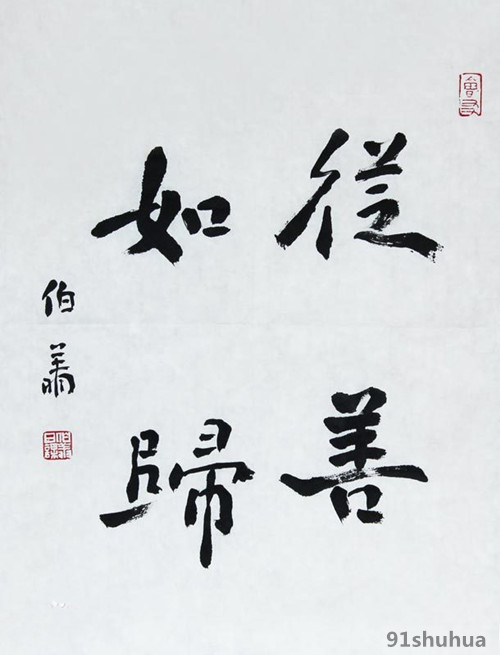 從善
如歸
伯
91shuhua